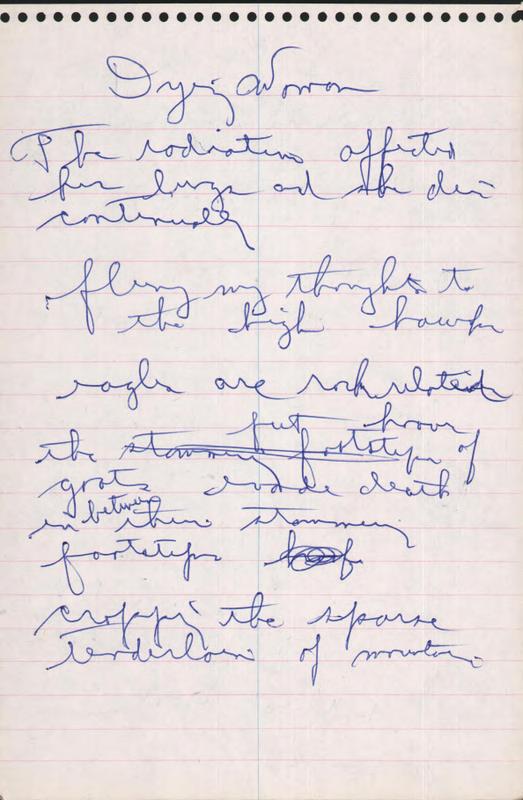 Dying Woman
The radiation affected
her lungs and she dies
continually
fling my thoughts to
the high hawks
eagles are rock related
put hooves
the stammering footsteps of
goats evade death
in between their stammering
footsteps
cropping the sparse
tenderloin of mountain